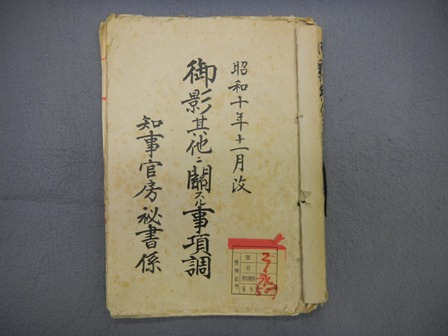 昭和十年十一月改
御影其他ニ關スル事項調
知事官房祕書係
永